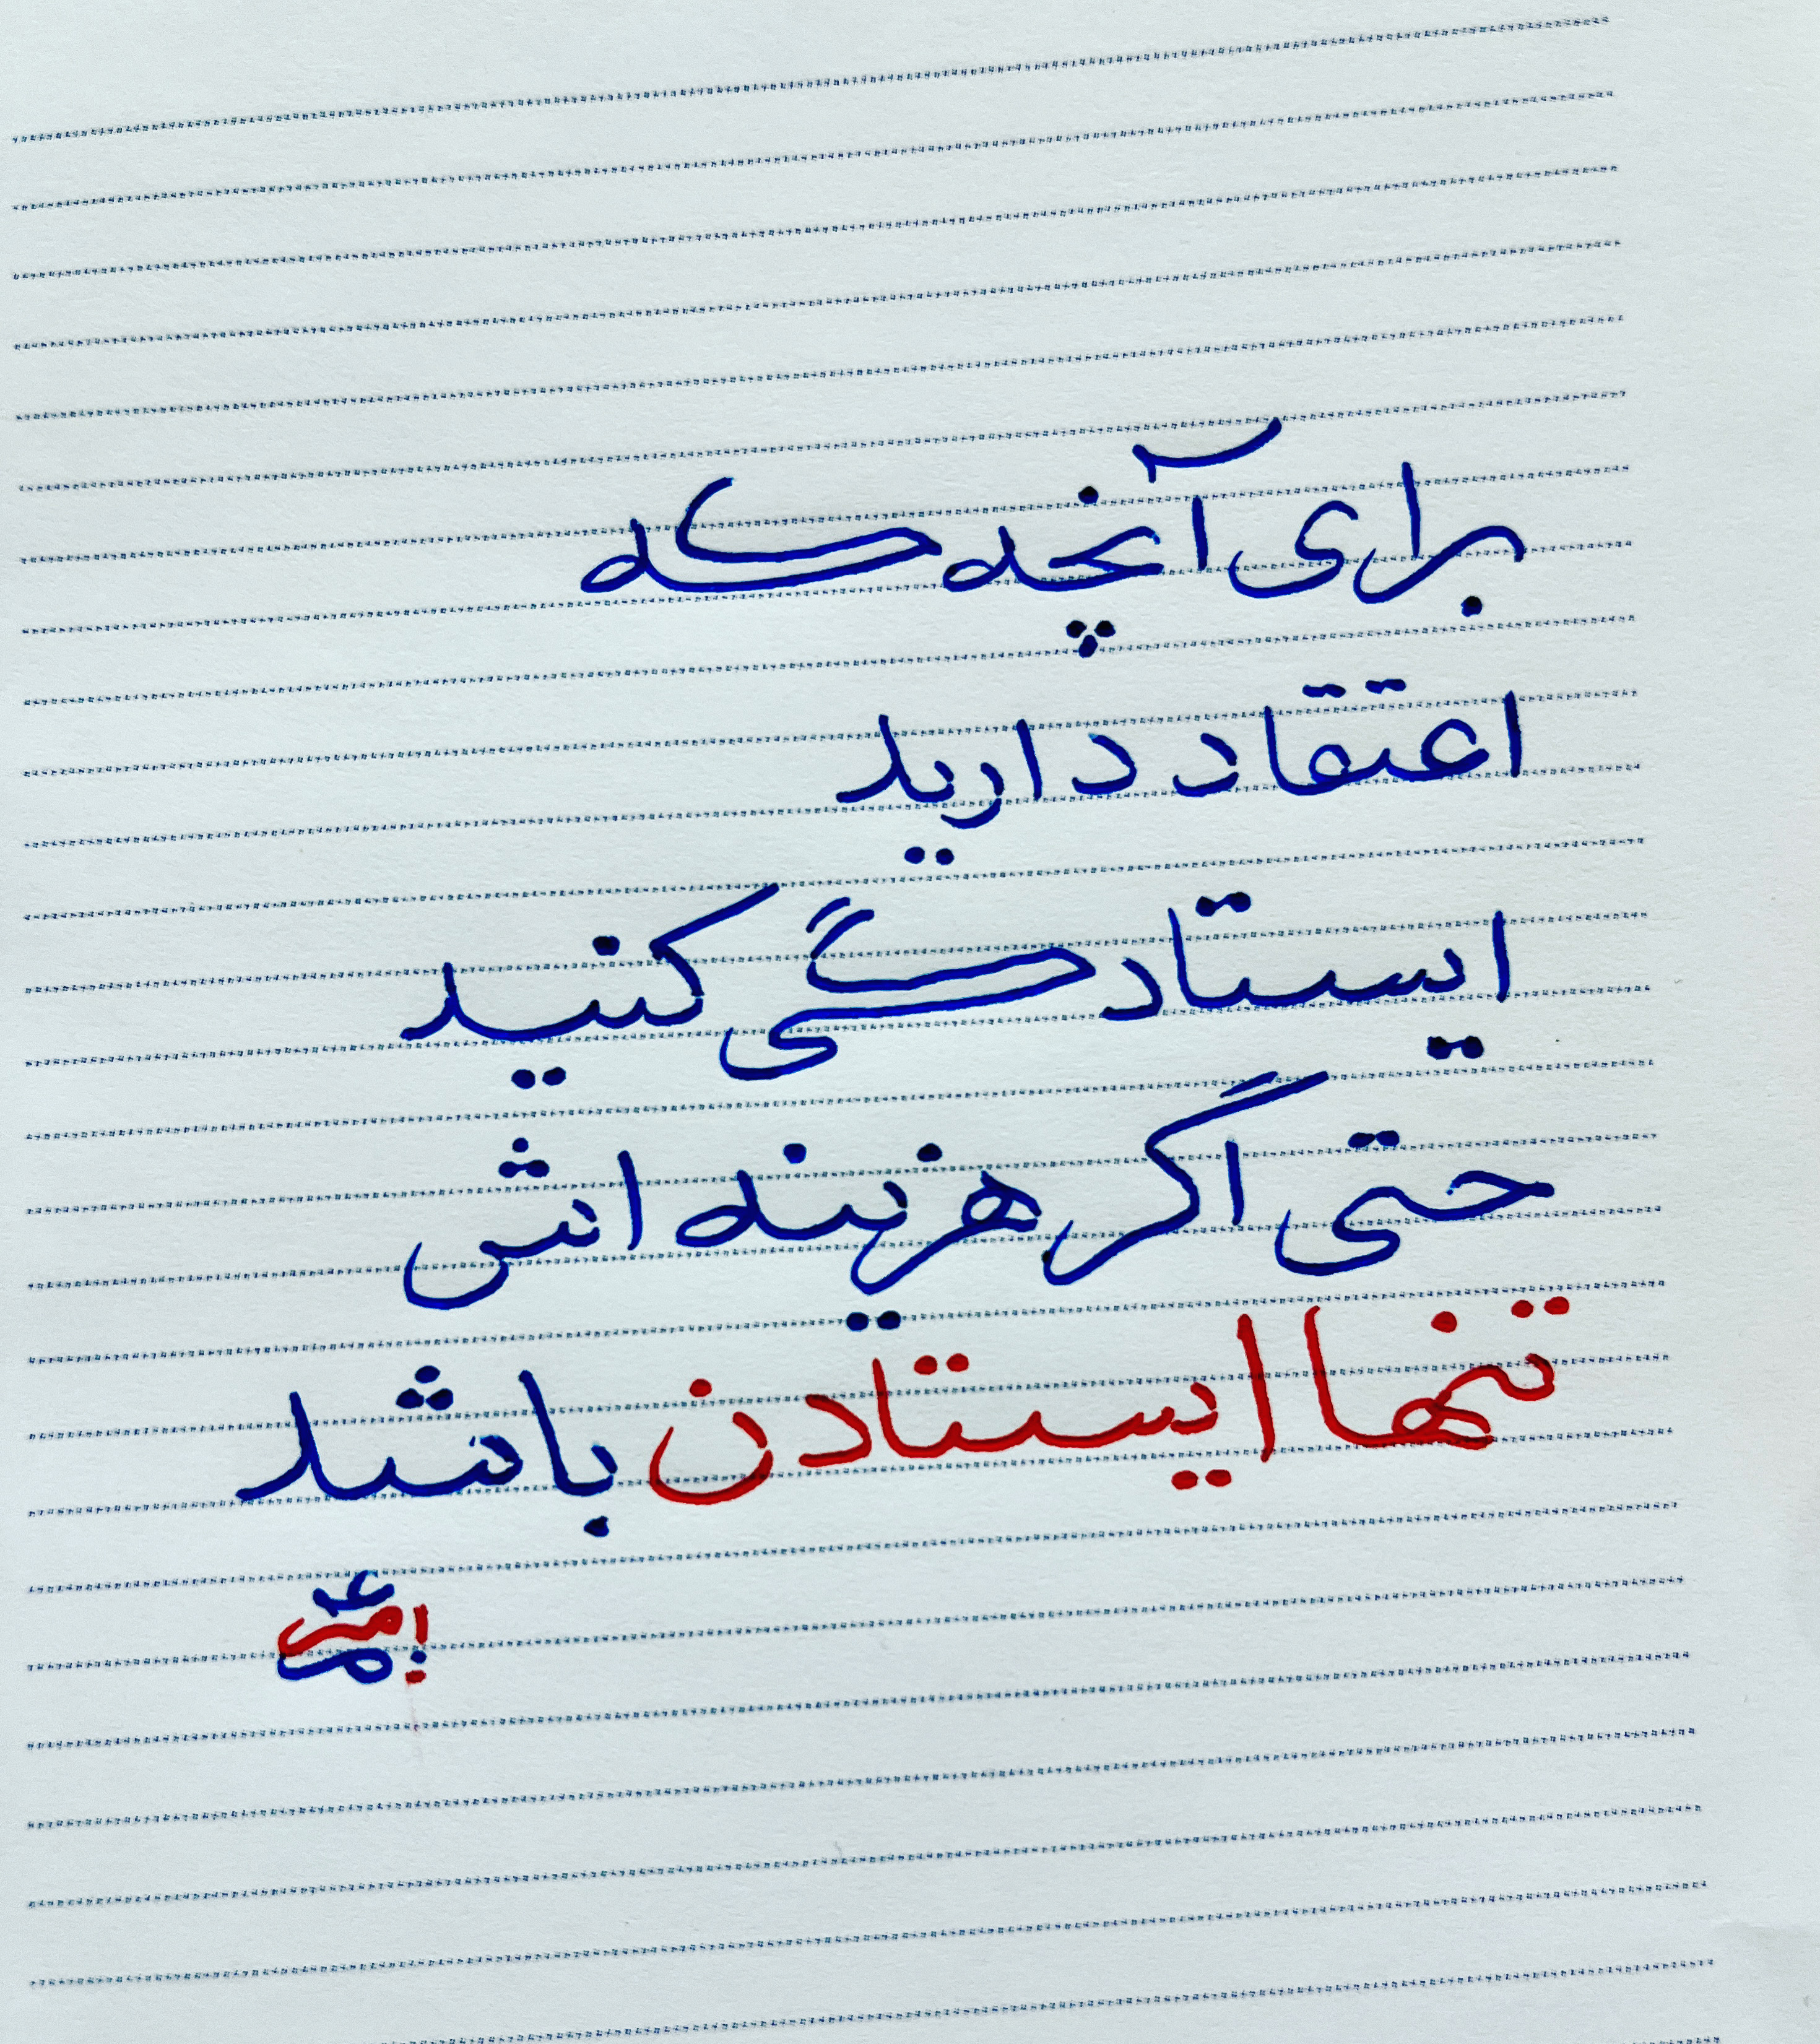 برای آنچه که
اعتقاد دارید
ایستادگی کنید
حتی اگر هزینه اش
تنها ایستادن باشد